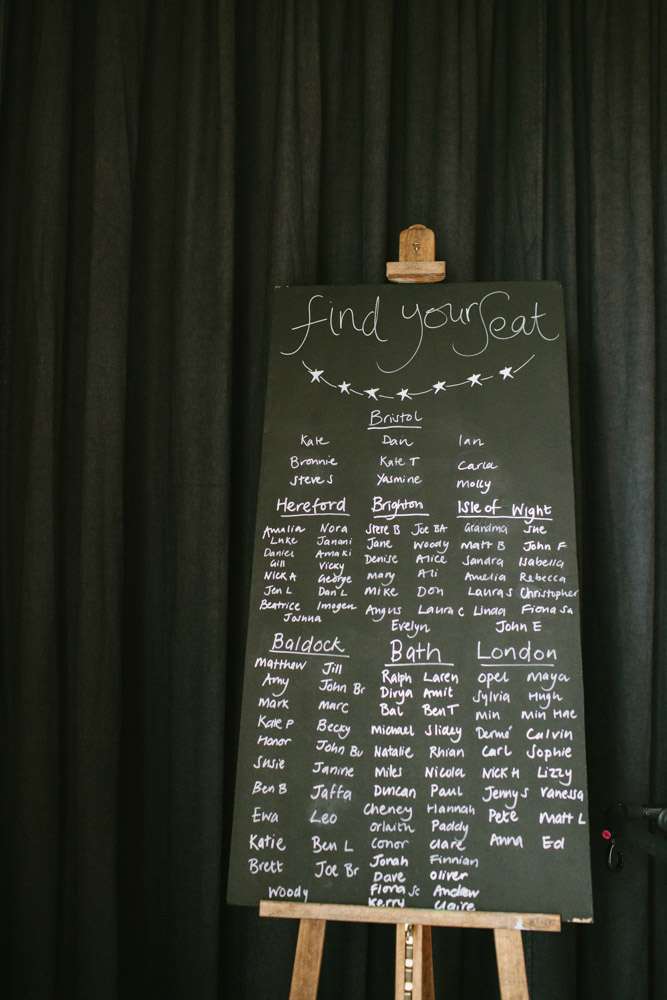 find your Seat
Bristol
Kate Dan Ian
Bronnie Kate T Carla
Steve S Yasmine Molly
Hereford
Amalia Nora
Luke Janani
Daniel Amaki
Gill Vicky
Nick A George
Jen L Dan L
Beatrice Imogen
Joanna
Brighton
Steve B Joe BA
Jane Woody
Denise Alice
Mary Ali
Mike Don
Angus Laura C
Evelyn
Isle of Wight
Grandma Sue
Matt B John F
Sandra Isabella
Amelia Rebecca
Laura S Christopher
Linda Fiona Sa
John E
Baldock
Matthew Jill
Amy John Br
Mark Marc
Kate P Becky
Honor John Bu
Susie Janine
Ben B Jaffa
Ewa Leo
Katie Ben L
Brett Joe Br
Woody
Bath
Ralph Laren
Divya Amit
Bal Ben T
Michael Slidey
Natalie Rhian
Miles Nicola
Duncan Paul
Cheney Hannah
Orlaith Paddy
Conor Clare
Jonah Finnian
Dave Oliver
Fiona Sc Andrew
Kerry Claire
London
Opel Maya
Sylvia Hugh
Min Min Hae
Calvin
Carl Sophie
Nick H Lizzy
Jenny S Vanessa
Pete Matt L
Anna Ed